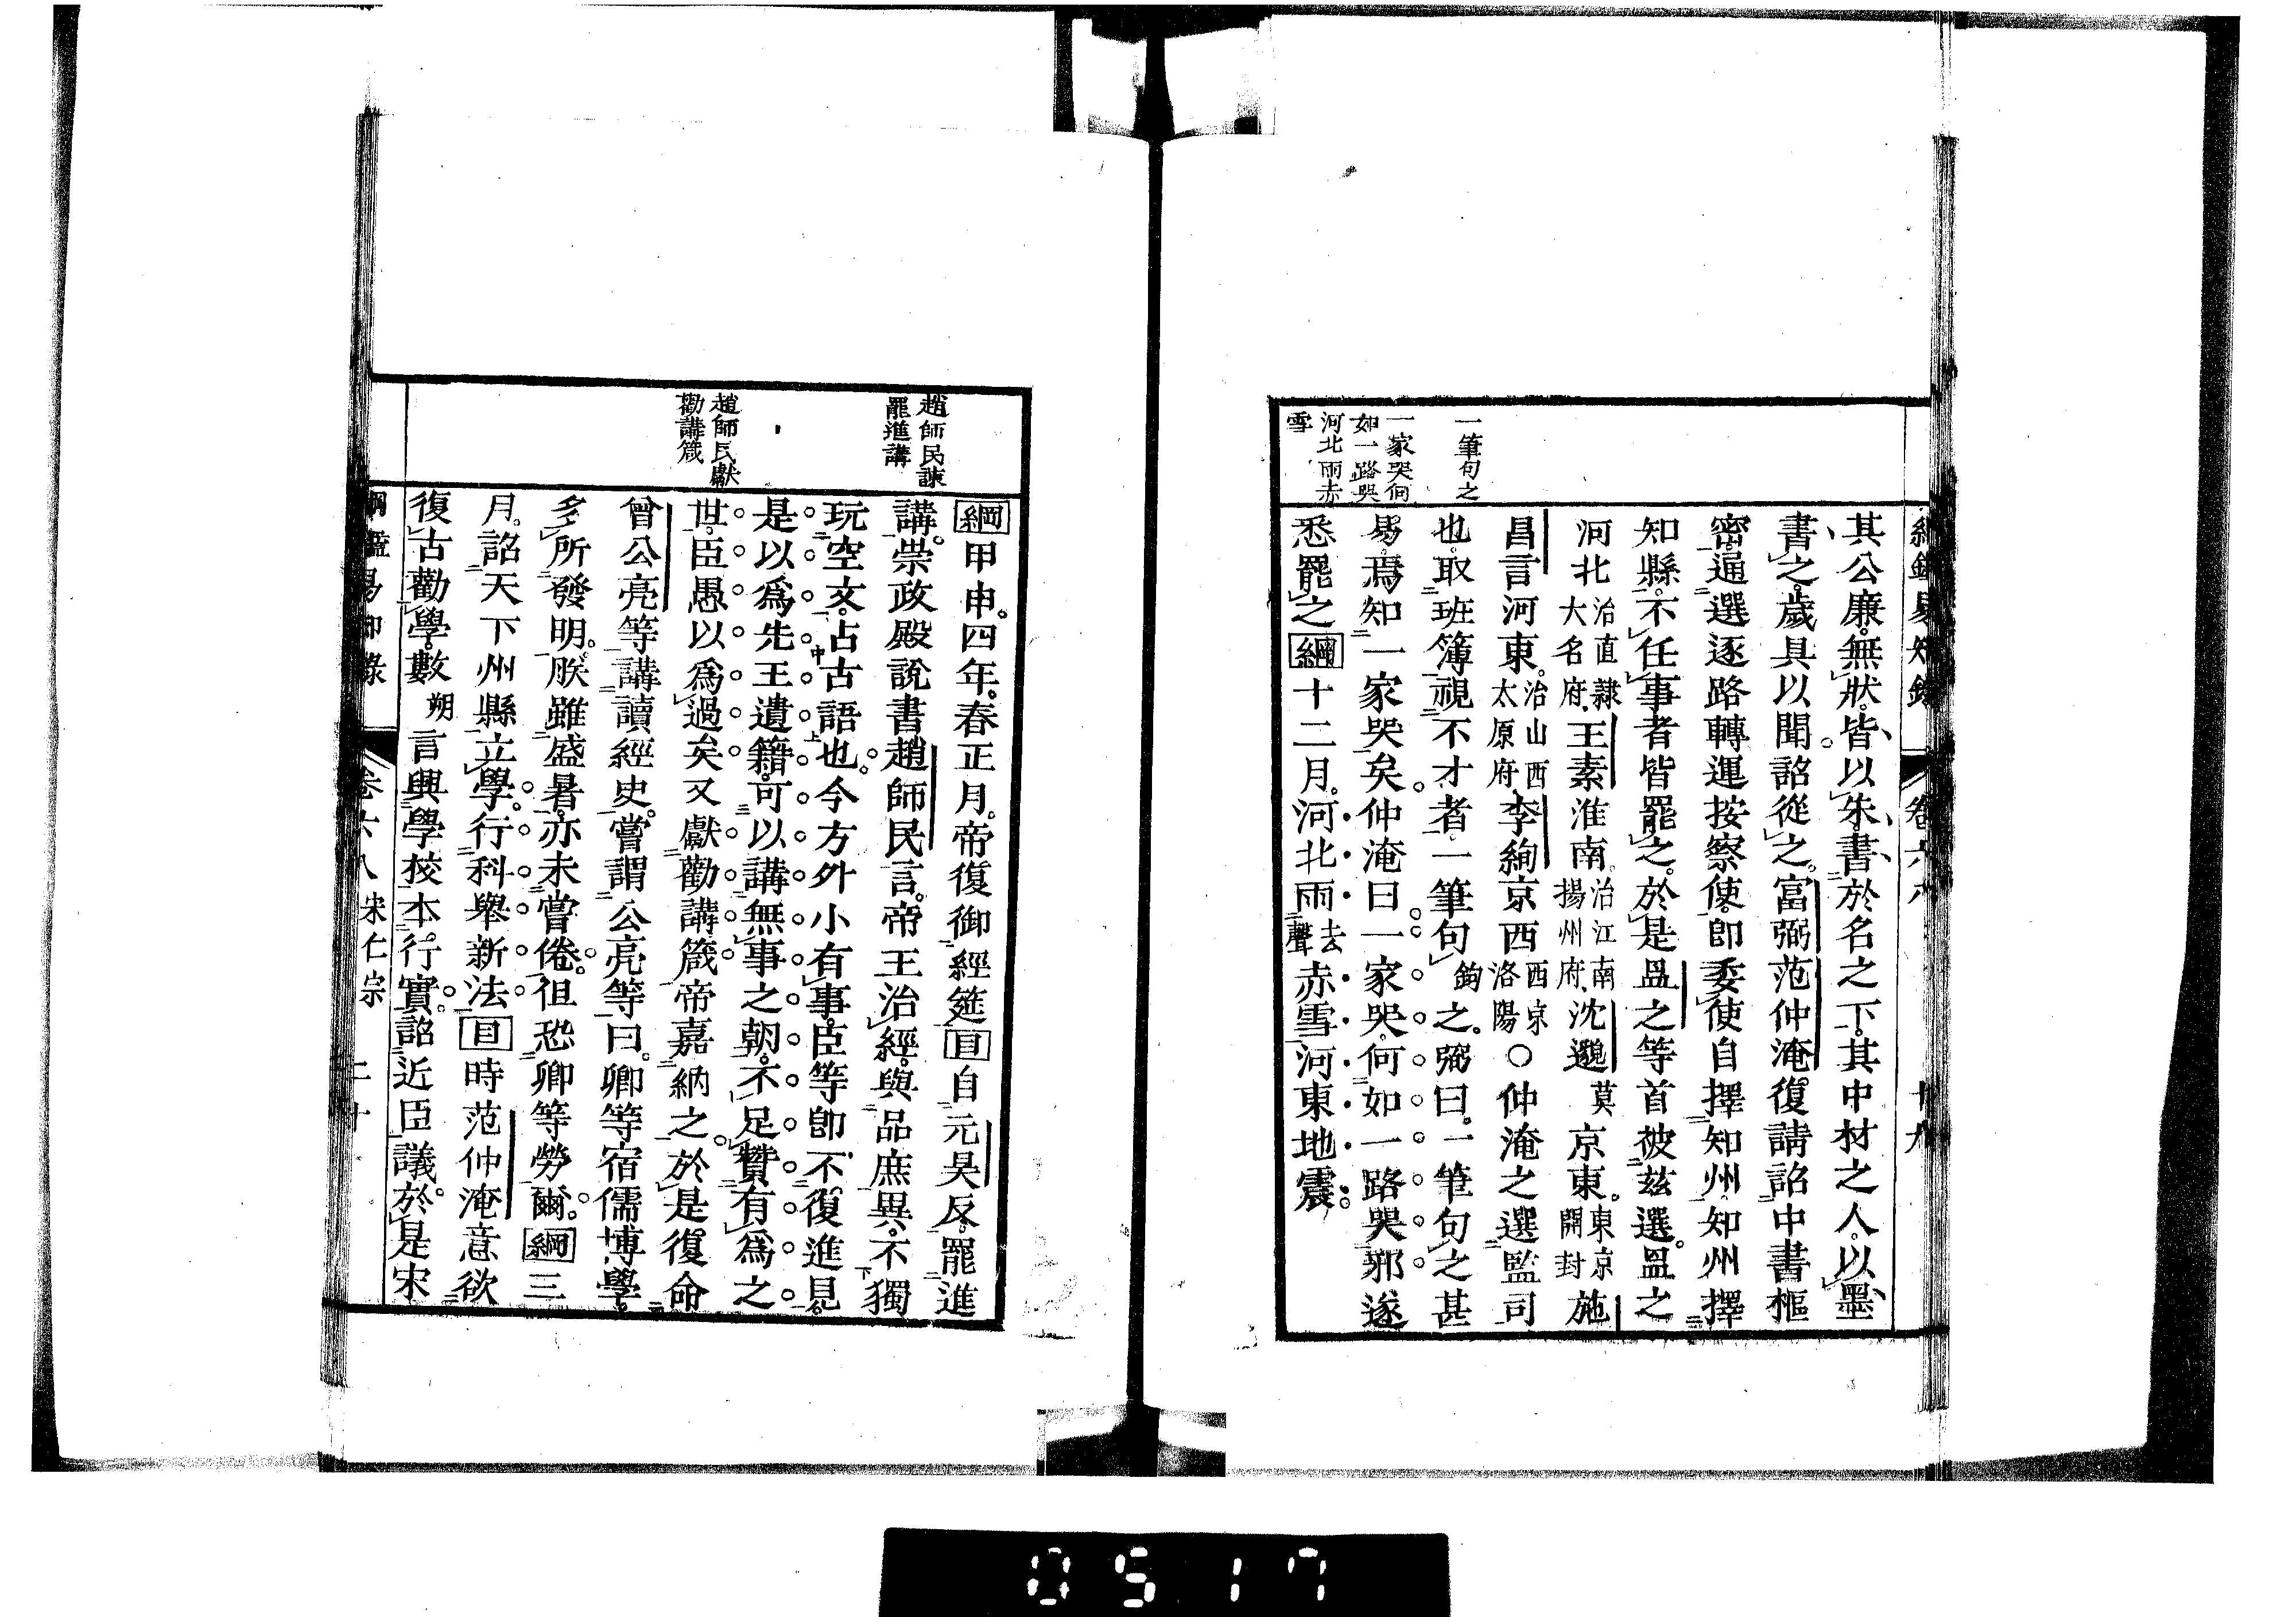 綱鑑易知錄　卷六八　十九
一筆句之
一家哭何
如一路哭
河北雨赤
雪
其公廉無狀皆以朱書於名之下其中材之人以墨
書之歲具以聞詔從之富弼范仲淹復請詔中書樞
密遍選逐路轉運按察使卽委使自擇知州知州擇
知縣不任事者皆罷之於是昷之等首被茲選昷之
河北治直隸大名府王素淮南治江南揚州府沈邈莫京東東京開封施
昌言河東治山西太原府李絢京西西京洛陽○仲淹之選監司
也取班簿視不才者一筆句鉤之弼曰一筆句之甚
易焉知一家哭矣仲淹曰一家哭何如一路哭邪遂
悉罷之綱十二月河北雨去聲赤雪河東地震
趙師民諫
罷進講
趙師民獻
勸講箴
綱甲申四年春正月帝復御經筵目自元昊反罷進
講崇政殿說書趙師民言帝王治經與品庶異不獨
玩空文占古語也今方外小有事臣等卽不復進見
是以爲先王遺籍可以講無事之朝不足贊有爲之
世臣愚以爲過矣又獻勸講箴帝嘉納之於是復命
曾公亮等講讀經史嘗謂公亮等曰卿等宿儒博學
多所發明朕雖盛暑亦未嘗倦但恐卿等勞爾綱三
月詔天下州縣立學行科舉新法目時范仲淹意欲
復古勸學數朔言興學校本行實詔近臣議於是宋
綱鑑易知錄　卷六八　宋仁宗　二十
0517